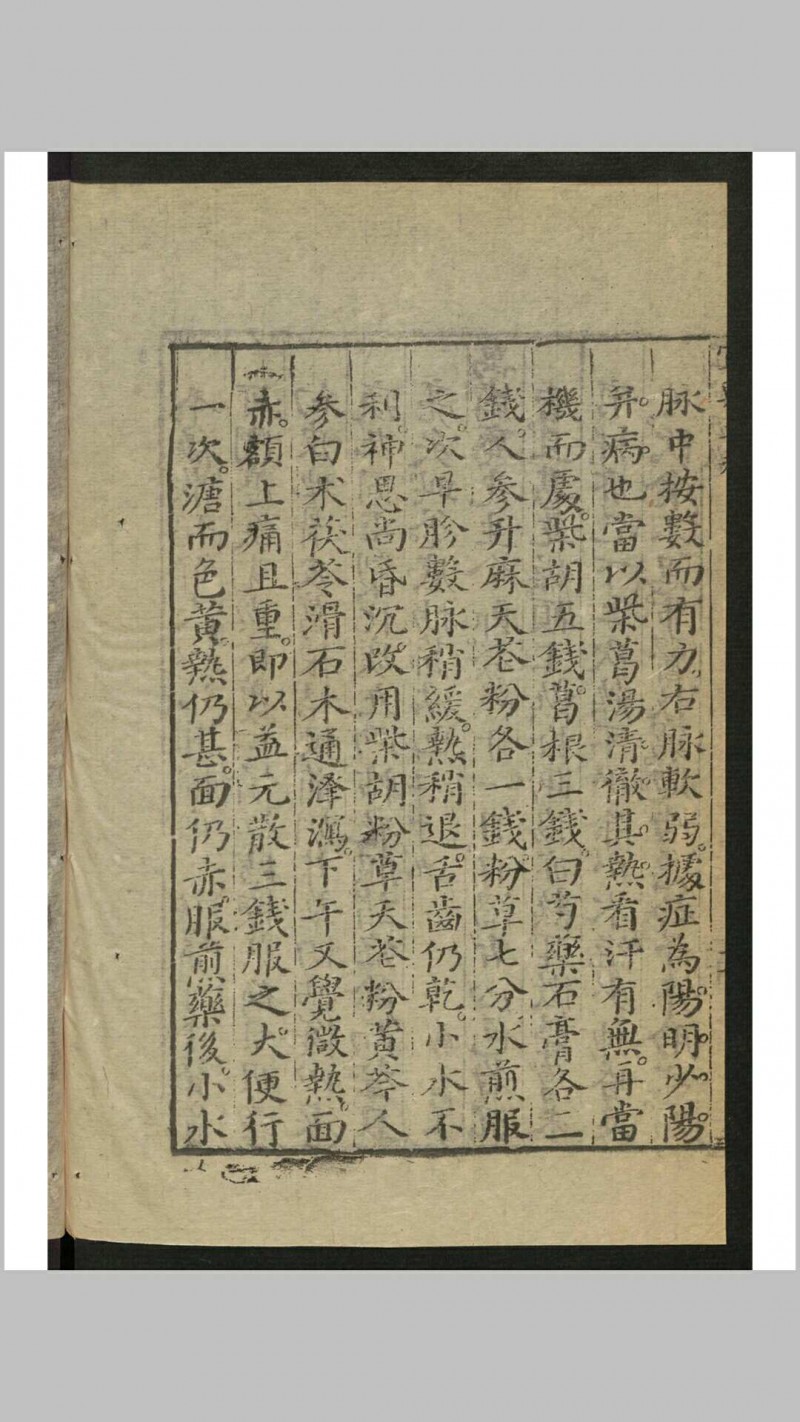 脉中按數而有力右脉軟弱。據症為陽明少陽
并病也當以柴葛湯清徹其熱看汗有無。再當
機而處。柴胡五錢。葛根三錢。白芍藥石膏各二
錢。人參升麻天花粉各一錢。粉草七分水煎服
之。次早胗數脉稍緩。熱稍退。舌齒仍乾。小水不
利。神思尚昏沉。改用柴胡粉草天花粉黃芩人
參白朮茯苓滑石木通澤瀉。下午又覺微熱。面
赤。額上痛且重。即以益元散三錢服之。大便行
一次。溏而色黃。熱仍甚。面仍赤。服煎藥後。小水